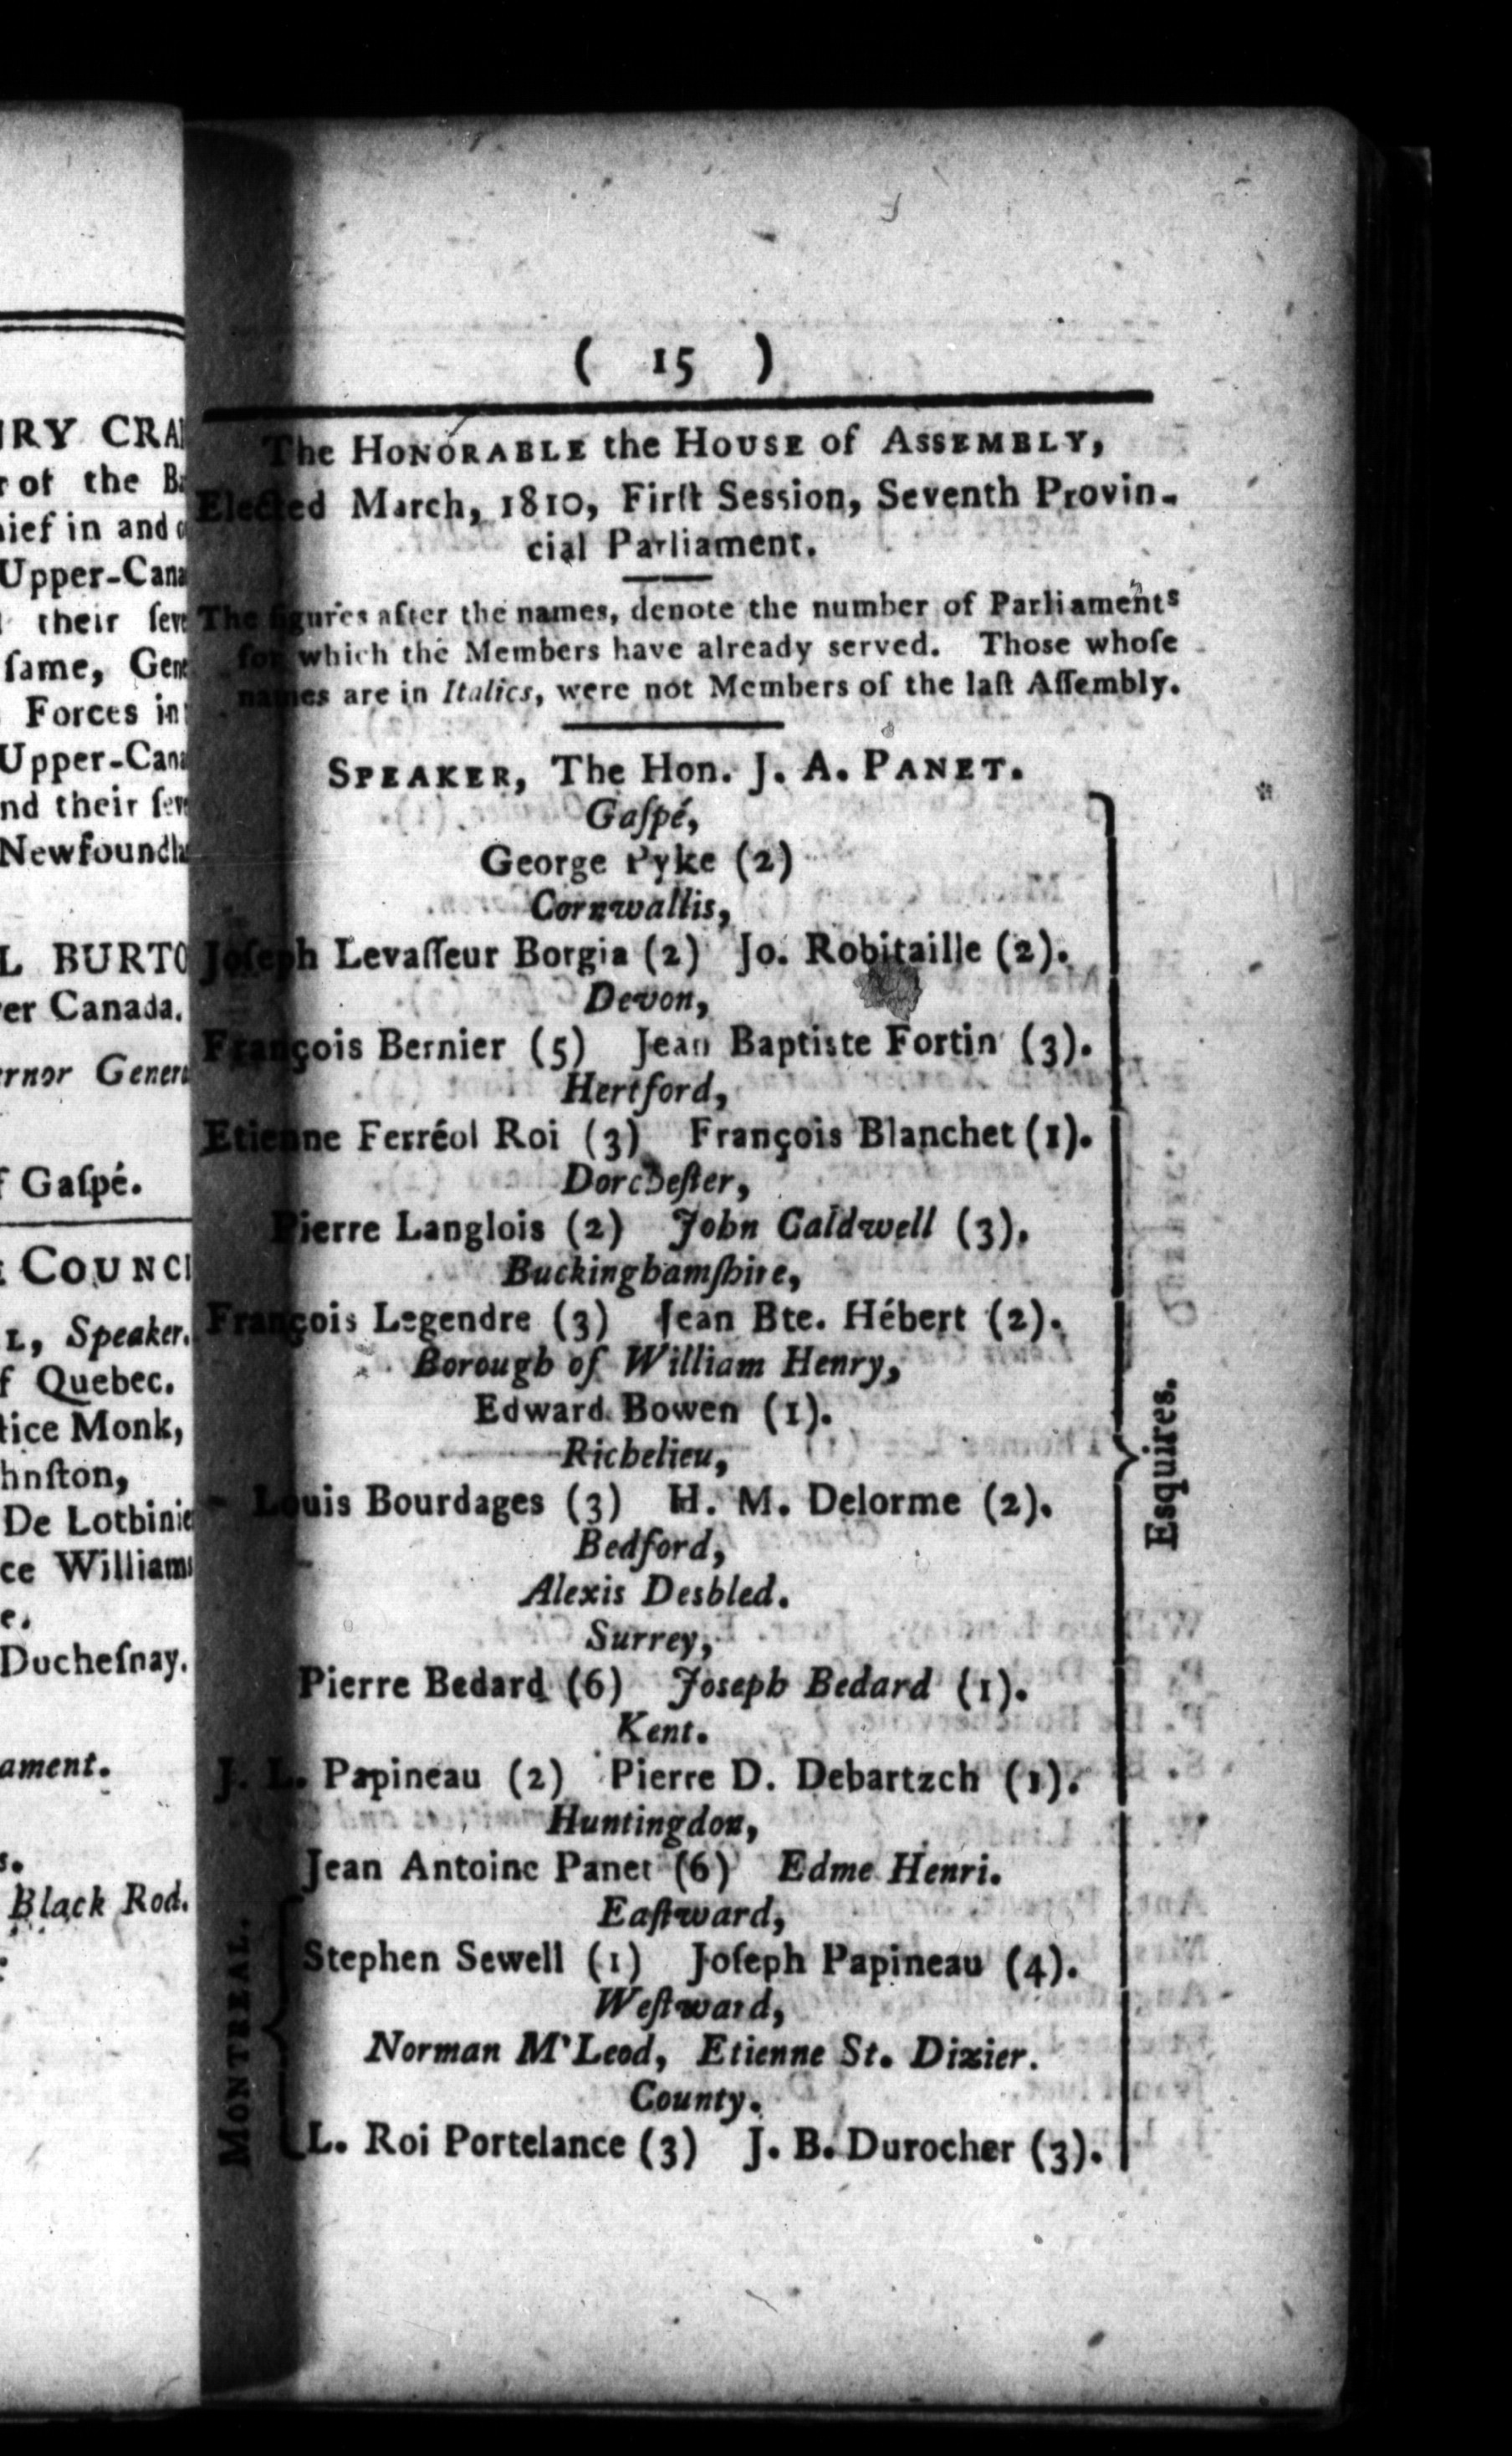 RY CRA
of the B
hief in and
Upper-Cana
their ſeve
ſame, Gene
Forces in
Upper-Cana
nd their ſev
Newfoundla
L BURTO
er Canada.
ernor Genera
f Gaſpé.
COUNCI
L, Speaker.
f Quebec.
tice Monk,
hnſton,
De Lotbinie
ce Williams
e.
Ducheſnay.
ament.
s.
Black Rod.
( 15 )
The HONORABLE the HOUSE of ASSEMBLY,
Elected March, 1810, Firſt Session, Seventh Provin-
cial Parliament.
The figures after the names, denote the number of Parliaments
for which the Members have already served. Those whoſe
names are in Italics, were not Members of the laſt Aſſembly.
SPEAKER, The Hon. J. A. PANET.
Gaſpé,
George Pyke (2)
Cornwallis,
Joſeph Levaſſeur Borgia (2) Jo. Robitaille (2).
Devon,
François Bernier (5) Jean Baptiste Fortin (3).
Hertford,
Etienne Ferréol Roi (3) François Blanchet (1).
Dorcheſter,
Pierre Langlois (2) John Caldwell (3).
Buckinghamſhire,
François Legendre (3) Jean Bte. Hébert (2).
Borough of William Henry,
Edward Bowen (1).
Richelieu,
Louis Bourdages (3) H. M. Delorme (2).
Bedford,
Alexis Desbled.
Surrey,
Pierre Bedard (6) Joseph Bedard (1).
Kent.
J. L. Papineau (2) Pierre D. Debartzch (1).
Huntingdon,
Jean Antoine Panet (6) Edme Henri.
Eaſtward,
Stephen Sewell (1) Joſeph Papineau (4).
Weſtward,
Norman M'Leod, Etienne St. Dizier.
County.
L. Roi Portelance (3) J. B. Durocher (3).
MONTREAL.
Esquires.